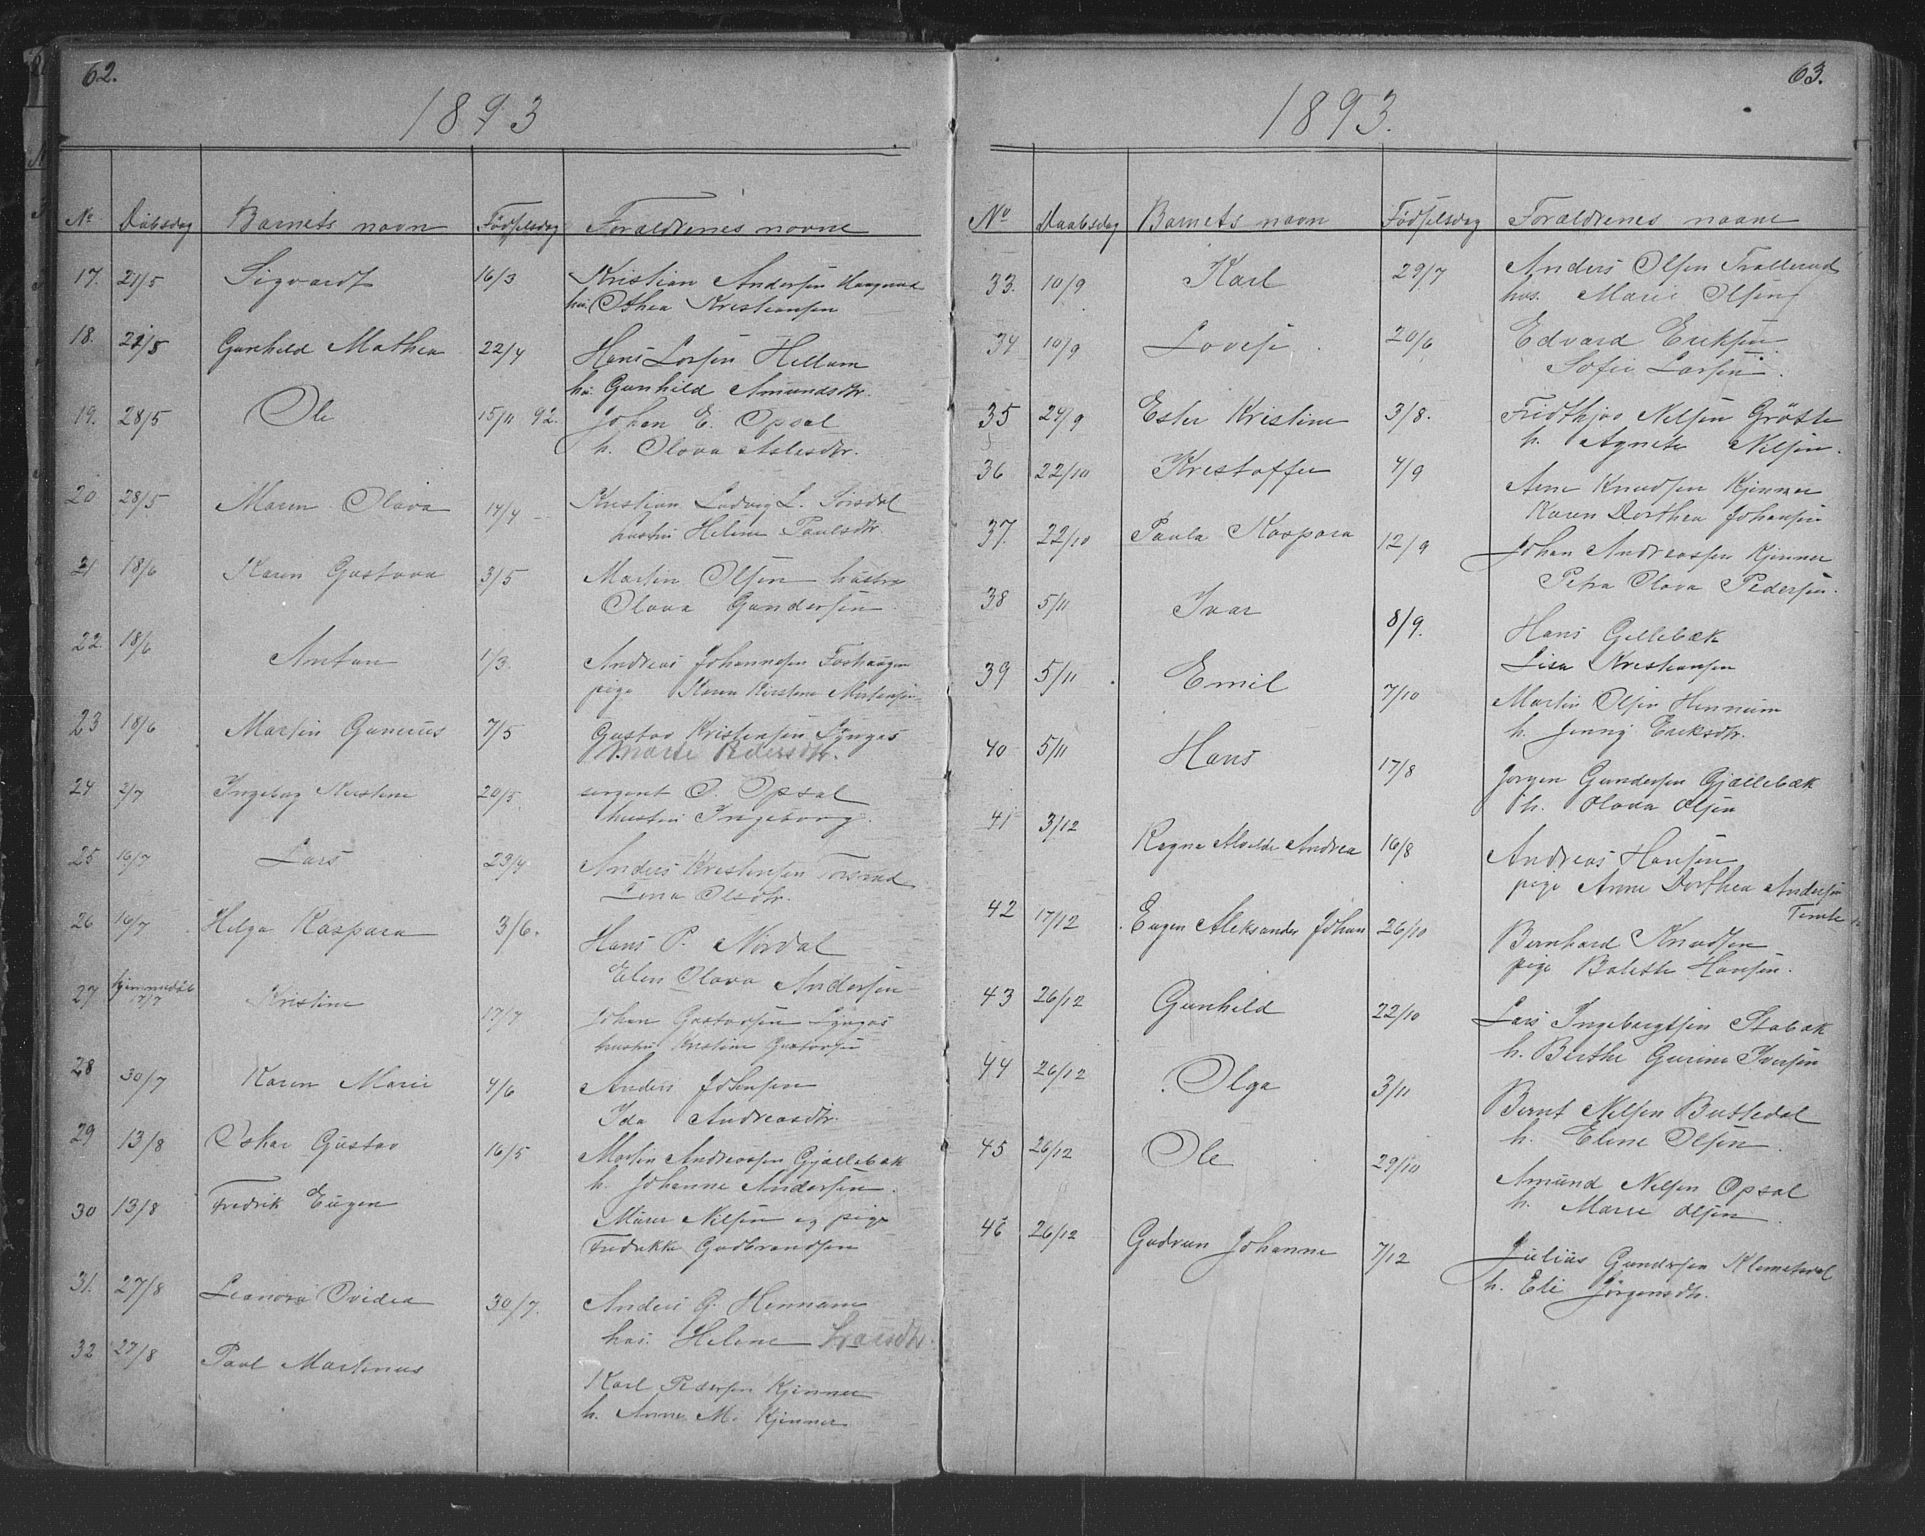 62.
1893
No Dåbsdag Barnets navn Fødselsdag Forældrenes navne
17. 21/5 Sigvardt 16/3 Kristian Andersen Haugerud
hu: Othea Kristiansen
18. 21/5 Gunhild Mathea 22/4 Hans Larsen Hellum
hu: Gunhild Amundsdtr.
19. 28/5 Ole 15/11 92. Johan E. Opsal
h. Olava Aslesdtr.
20 28/5 Maren Olava 14/4 Kristian Ludvig L. Sørsdal
hustru Helene Paulsdtr.
21 18/6 Karen Gustava 3/5 Martin Olsen hustru
Olava Gundersen
22. 18/6 Anton 1/3. Andreas Johannesen Foshaugen
pige Karen Kirstine Mortensen
23 18/6 Martin Gunerius 7/5 Gustav Kristensen Lyngås
Marie Pedersdtr.
24 2/7 Ingeborg Kirstine 20/5. sergent O. Opsal
hustru Ingeborg.
25 16/7 Lars 23/4 Anders Kristensen Torsrud
Lena Olsdtr.
26 16/7 Helga Kaspara 3/6. Hans P. Nordal
Elen Olava Andersen
27. hjemmedøb 17/7 Kristine 17/7 Johan Gustavsen Lyngås
hustru Kristine Gustavsen
28 30/7 Karen Marie 4/6 Anders Johansen
Ida Andreasdtr.
29 13/8 Oskar Gustav 16/5 Martin Andreassen Gjællebæk
h. Johanne Andersen.
30 13/8 Fredrik Eugen Murer Nilsen og pige
Fredrikke Gudbrandsen
31. 27/8 Leanora Ovidea 30/7. Anders G. Hennum
hus. Helene Larsdtr.
32 27/8 Paul Martinus Karl Pedersen Kjenner
h. Anne M. Kjenner
63.
1893.
No Daabsdag Barnets navn Fødselsdag Forældrenes navne
33. 10/9 Karl 29/7 Anders Olsen Trollerud
hus. Marie Olsen
34 10/9 Lovise 20/6 Edvard Eriksen
Sofie Larsen.
35 24/9 Ester Kristine 3/8. Fridthjov Nilsen Grøtte
h. Agnete Nilsen.
36 22/10 Kristoffer 4/9 Arne Knudsen Kjenner
Karen Dorthea Johansen
37. 22/10 Paula Kaspara 12/9 Johan Andreassen Kjenner
Petra Olava Pedersen.
38 5/11 Ivar 8/9. Hans Gjellebæk
Lisa Kristiansen
39 5/11 Emil 7/10 Martin Olsen Hennum
h. Jenny Eriksdtr.
40 5/11 Hans 17/8 Jørgen Gundersen Gjællebæk
h. Olava Olsen
41 3/12 Ragna Alvilde Andrea 16/8 Andreas Hansen
pige Anne Dorthea Andersen
42 17/12 Eugen Aleksander Johan 26/10 Bernhard Knudsen
pige Balette Hansen.
43 26/12 Gunhild 22/10 Lars Ingebrigtsen Stabæk
h. Berthe Gurine Iversen
44 26/12 Olga 3/11 Bernt Nilsen Buttedal
h. Eline Olsen.
45 26/12 Ole 29/10 Amund Nilsen Opsal
h. Marie Olsen.
46 26/12 Gudrun Johanne 7/12 Julius Gundersen Klemetsdal
h. Eli Jørgensdtr.